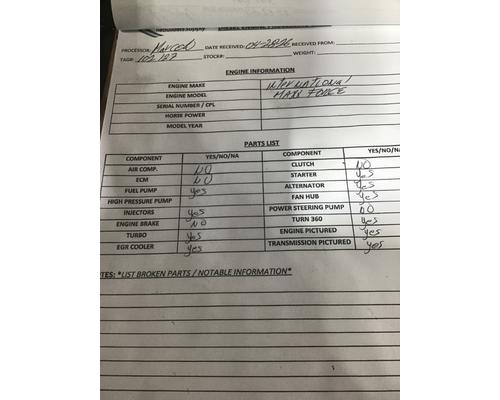 PROCESSOR: DATE RECEIVED: 04-2826 RECEIVED FROM:
TAG#: 102,127 STOCK#: WEIGHT:
ENGINE INFORMATION
ENGINE MAKE INTERNATIONAL
ENGINE MODEL MAXX FORCE
SERIAL NUMBER / CPL
HORSE POWER
MODEL YEAR
PARTS LIST
COMPONENT YES/NO/NA COMPONENT YES/NO/NA
AIR COMP. NO CLUTCH NO
ECM NO STARTER yes
FUEL PUMP yes ALTERNATOR yes
HIGH PRESSURE PUMP FAN HUB yes
INJECTORS yes POWER STEERING PUMP NO
ENGINE BRAKE NO TURN 360 yes
TURBO yes ENGINE PICTURED yes
EGR COOLER yes TRANSMISSION PICTURED yes
TES: *LIST BROKEN PARTS / NOTABLE INFORMATION*